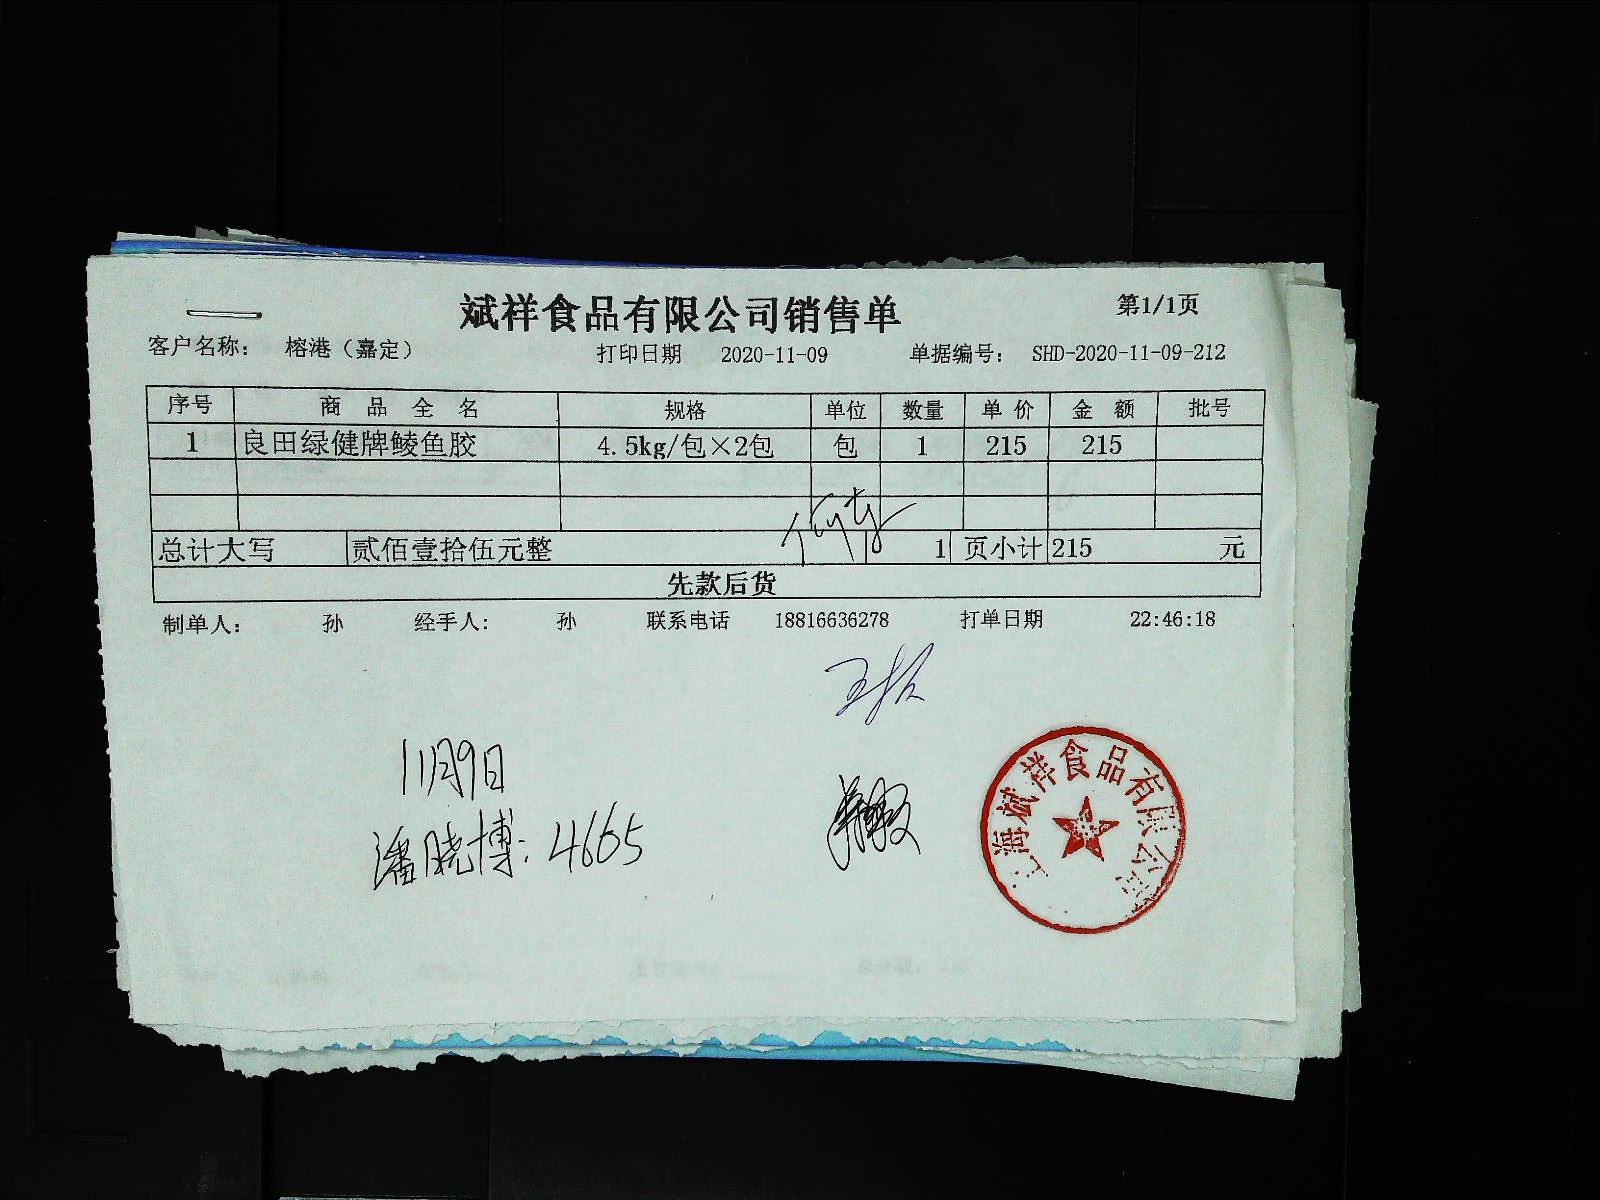 斌祥食品有限公司销售单
第1/1页
客户名称： 榕港（嘉定） 打印日期 2020-11-09 单据编号： SHD-2020-11-09-212
序号 商品全名 规格 单位 数量 单价 金额 批号
1 良田绿健牌鲮鱼胶 4.5kg/包×2包 包 1 215 215
总计大写 贰佰壹拾伍元整 1 页小计 215 元
先款后货
制单人： 孙 经手人： 孙 联系电话 18816636278 打单日期 22:46:18
11月9日
潘晓博：4665
上海斌祥食品有限公司